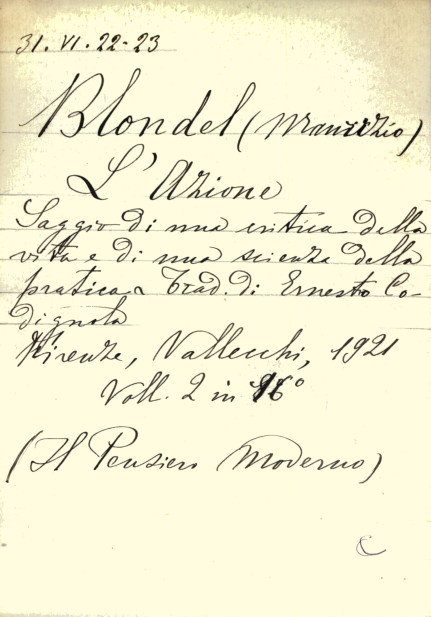 31. VI. 22-23
Blondel (Maurizio)
L'Azione
Saggio di una critica della
vita e di una scienza della
pratica Trad. di Ernesto Co-
dignola
Firenze, Vallecchi, 1921
Voll. 2 in 16°
(Il Pensiero Moderno)